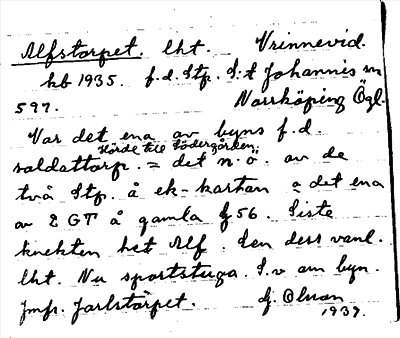 Alfstorpet. lht. Vrinnevid.
hb 1935. f.d. Stp. S:t Johannis sn
597. Norrköping Ögl.
Var det ena av byns f.d.
Hörde till Södergården;
soldattorp. = det n. ö. av de
två Stp. å ek-kartan = det ena
av 2 GT å gamla f 56. Siste
knekten het Alf. den dess vanl.
lht. Nu sportstuga. S.v om byn.
Jmf. Jarlstorpet. G. Olsson
1937.